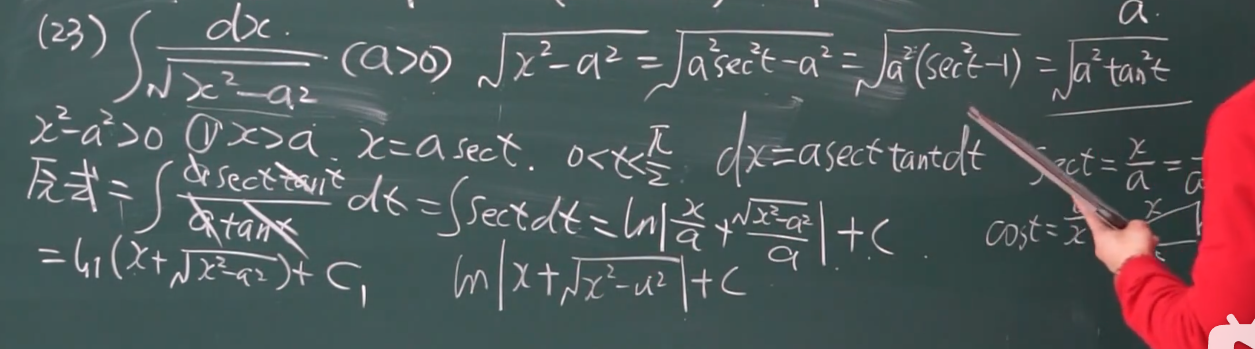 (23) ∫ dx/√(x²-a²) (a>0) √(x²-a²) = √(a²sec²t-a²) = √(a²(sec²t-1)) = √(a²tan²t)
a.
x²-a²>0 ① x>a x=a sect. 0<t<π/2 dx=asect tantdt
sect = x/a =
原式 = ∫ (a sect tant)/(a tant) dt = ∫sectdt = ln|x/a + √(x²-a²)/a| + C
cost = /x
x
= ln(x+√(x²-a²)) + C₁ ln|x+√(x²-a²)| + C